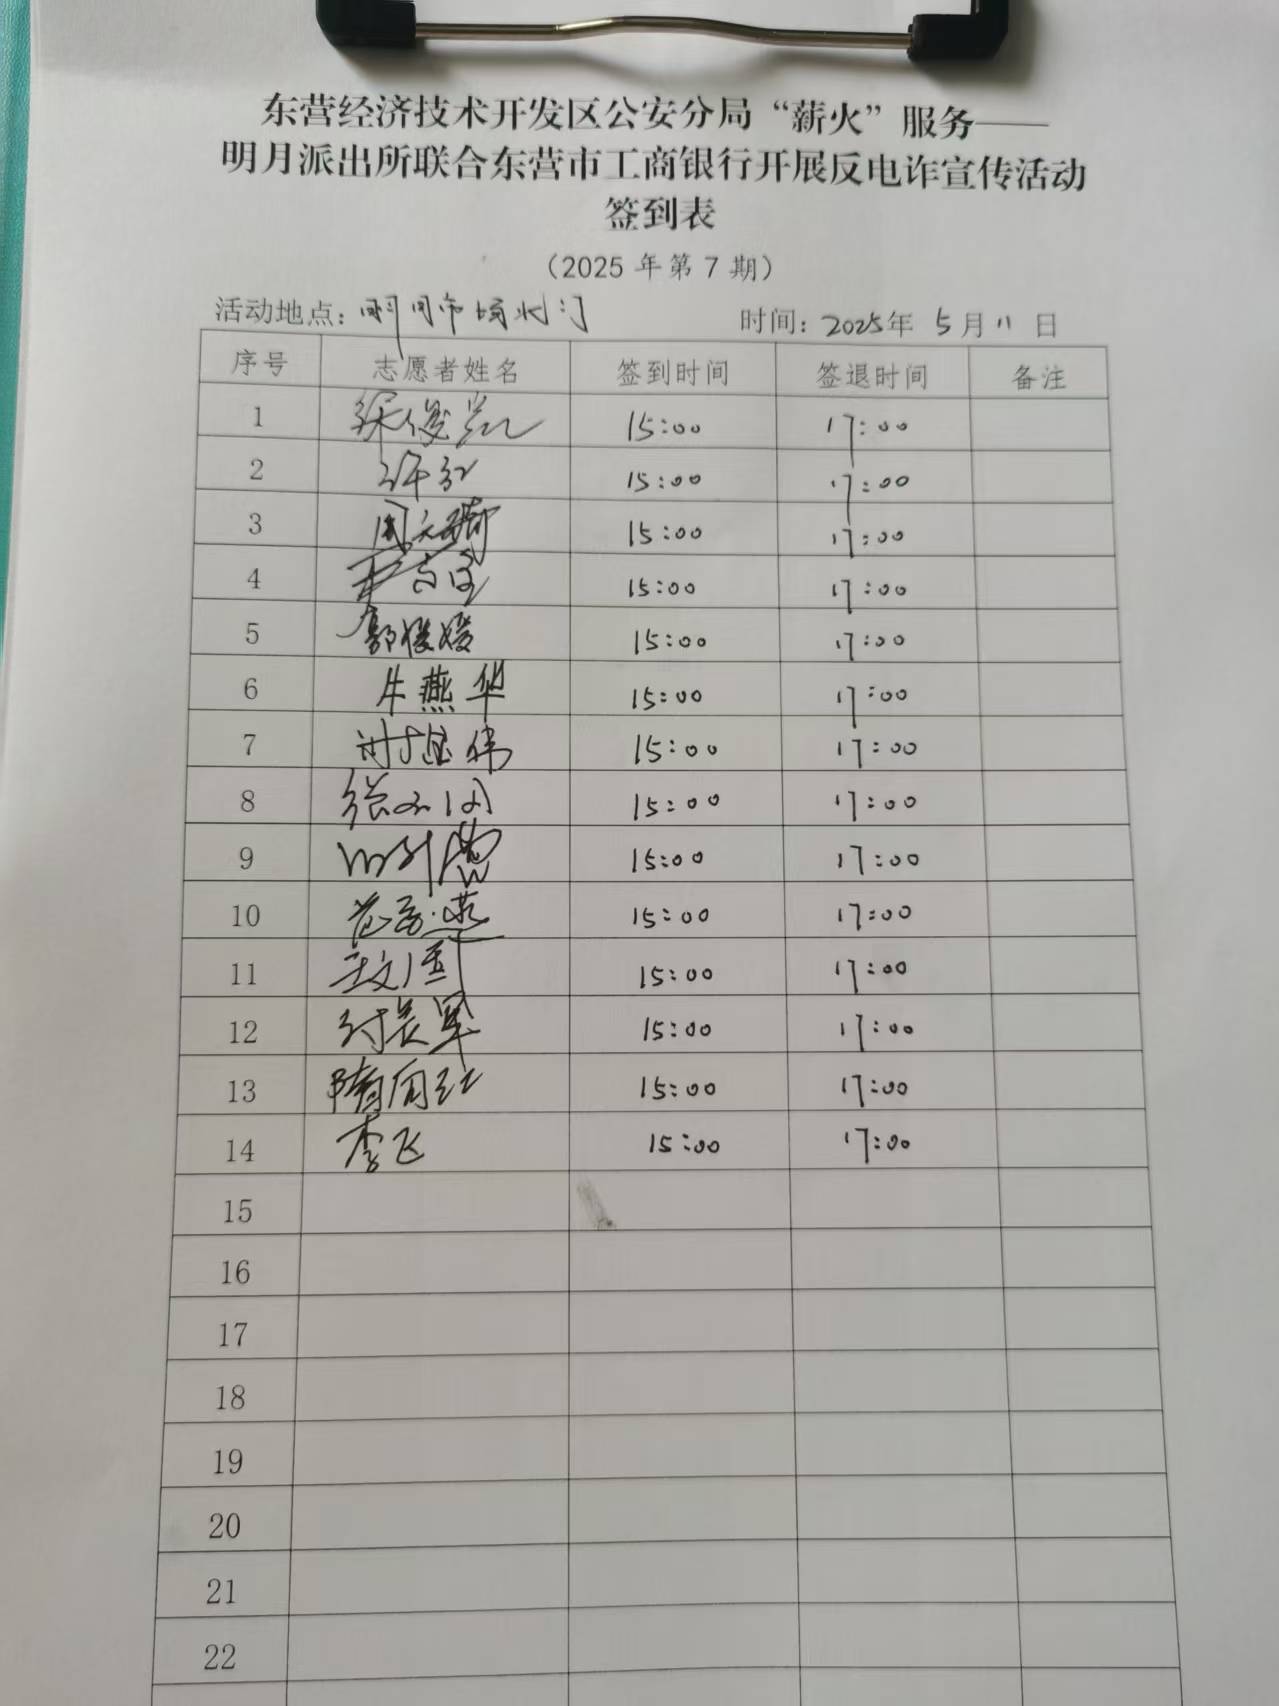 东营经济技术开发区公安分局“薪火”服务——
明月派出所联合东营市工商银行开展反电诈宣传活动
签到表
（2025 年第 7 期）
活动地点： 时间：2025年 5月 11 日
序号 志愿者姓名 签到时间 签退时间 备注
1 15:00 17:00
2 许红 15:00 17:00
3 15:00 17:00
4 15:00 17:00
5 郭媛媛 15:00 17:00
6 牛燕华 15:00 17:00
7 15:00 17:00
8 15:00 17:00
9 15:00 17:00
10 15:00 17:00
11 15:00 17:00
12 付长军 15:00 17:00
13 15:00 17:00
14 李飞 15:00 17:00
15
16
17
18
19
20
21
22